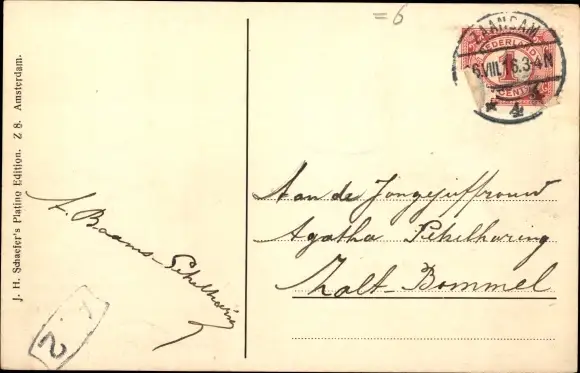 =6
ZAANDAM
NEDERLAND
1
CENT
6.VIII.1 6.3-4N
* 4
J. H. Schaefer's Platino Edition. Z 8. Amsterdam.
A. Baams-Pekelharing
Aan de Jongejuffrouw
Agatha Pekelharing
Zalt-Bommel
N.2